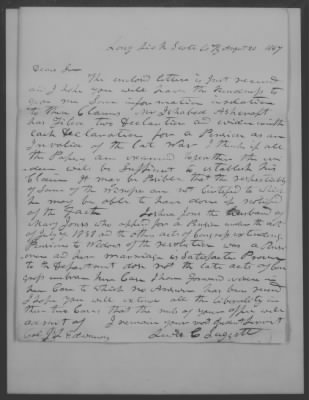 Long Lick Ky Scott Co Ky August 20 1847
Dear Sir
The enclosed letter is Just received
and I hope you will have the kindness to
give me Some information in relation
to these Claims Mr Ichabod Ashcroft
has Filed two Declaration and evidence with
Each Declaration for a Pension as an
Invalid of the Late War I think if all
the Papers are examined together the
will be Sufficient to establish his
Claim It may be Possible that the
of Some of the are not Certified to which
he may be able to have done if notified
of the Facts Joshua Jones the Husband of
Mary Jones who applies for a Pension under the act
of July 1838 and the other acts of Congress extending
Pensions to Widows of the revolution was a
and her marriage is Satisfactorily Proven
to the Department does not the late acts of Con
gress embrace her Case I have
her Case to which no Answer has been received
I hope you will extend all the liberality in
these two Cases that the rules of your office will
admit of I remain your most obedt Servt
Col J L Edwards